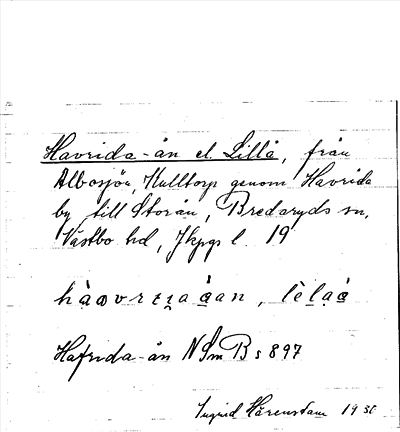 Havrida-ån el. Lillå, från
Albosjön, Kulltorp genom Havrida
by till Storån, Bredaryds sn,
Västbo hd, Jkpgs l. 19
Hafrida-ån N Sm B s 897
Ingrid Härenstam 1930